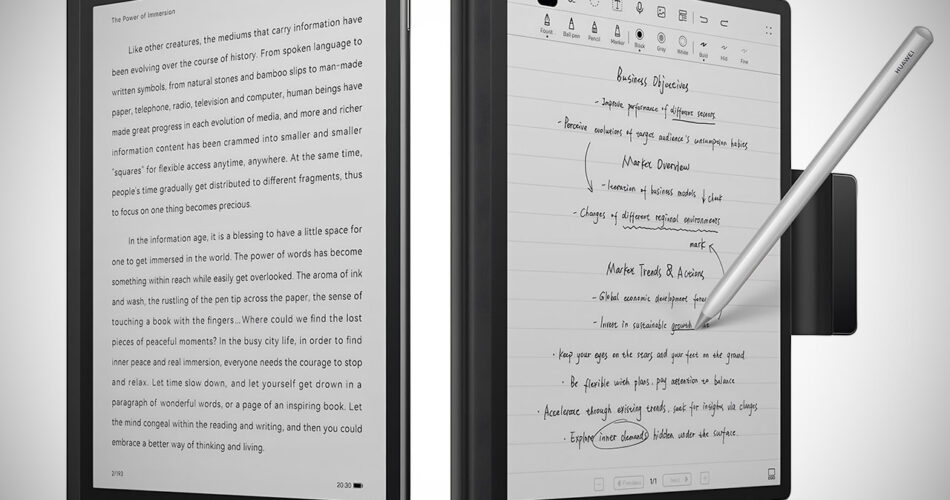 The Power of Immersion
Like other creatures, the mediums that carry information have
been evolving over the course of history. From spoken language to
written symbols, from natural stones and bamboo slips to man-made
paper, telephone, radio, television and computer, human beings have
made great progress in each evolution of media, and more and richer
information content has been crammed into smaller and smaller
"squares" for flexible access anytime, anywhere. At the same time,
people's time gradually get distributed to different fragments, thus
to focus on one thing becomes precious.
In the information age, it is a blessing to have a little space for
one to get immersed in the world. The power of words has become
something within reach while easily get overlooked. The aroma of ink
and wash, the rustling of the pen tip across the paper, the sense of
touching a book with the fingers... Where could we find the lost
pieces of peaceful moments? In the busy city life, in order to find
inner peace and real immersion, everyone needs the courage to stop
and relax. Let time slow down, and let yourself get drown in a
paragraph of wonderful words, or a page of an inspiring book. Let
the mind congeal within the reading and writing, and then you could
embrace a better way of thinking and living.
2/193
20:30
Fount Ball pen Pencil Marker Black Gray White Bold Mid Fine
Business Objectives
- Improve performance of different sectors
- Perceive evolutions of target audience's consumption habits
Market Overview
- Iteration of business models ↓ chart
- Changes of different regional environments
mark
Market Trends & Actions
- Global economic development
- Invest in sustainable growth
· Keep your eyes on the stars and your feet on the ground
· Be flexible with plans, pay attention to balance
· Accelerate through existing trends, seek for insights via changes
· Explore inner demands hidden under the surface.
< Previous 1/1 Next >
HUAWEI